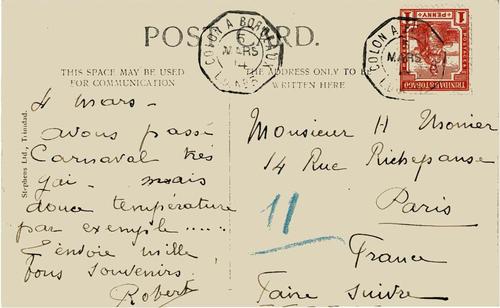 POST CARD.
COLON A BORDEAUX
6
MARS
14
THIS SPACE MAY BE USED
FOR COMMUNICATION
THE ADDRESS ONLY TO BE
WRITTEN HERE
COLON A
MARS
1 PENNY 1
TRINIDAD & TOBAGO
Stephens Ltd., Trinidad.
4 mars -
avons passé
Carnaval très
gai - mais
douce température
par exemple .....
T'envoie mille
bons souvenirs.
Robert
Monsieur H Monier
14 Rue Richepanse
11
Paris
France
Faire suivre